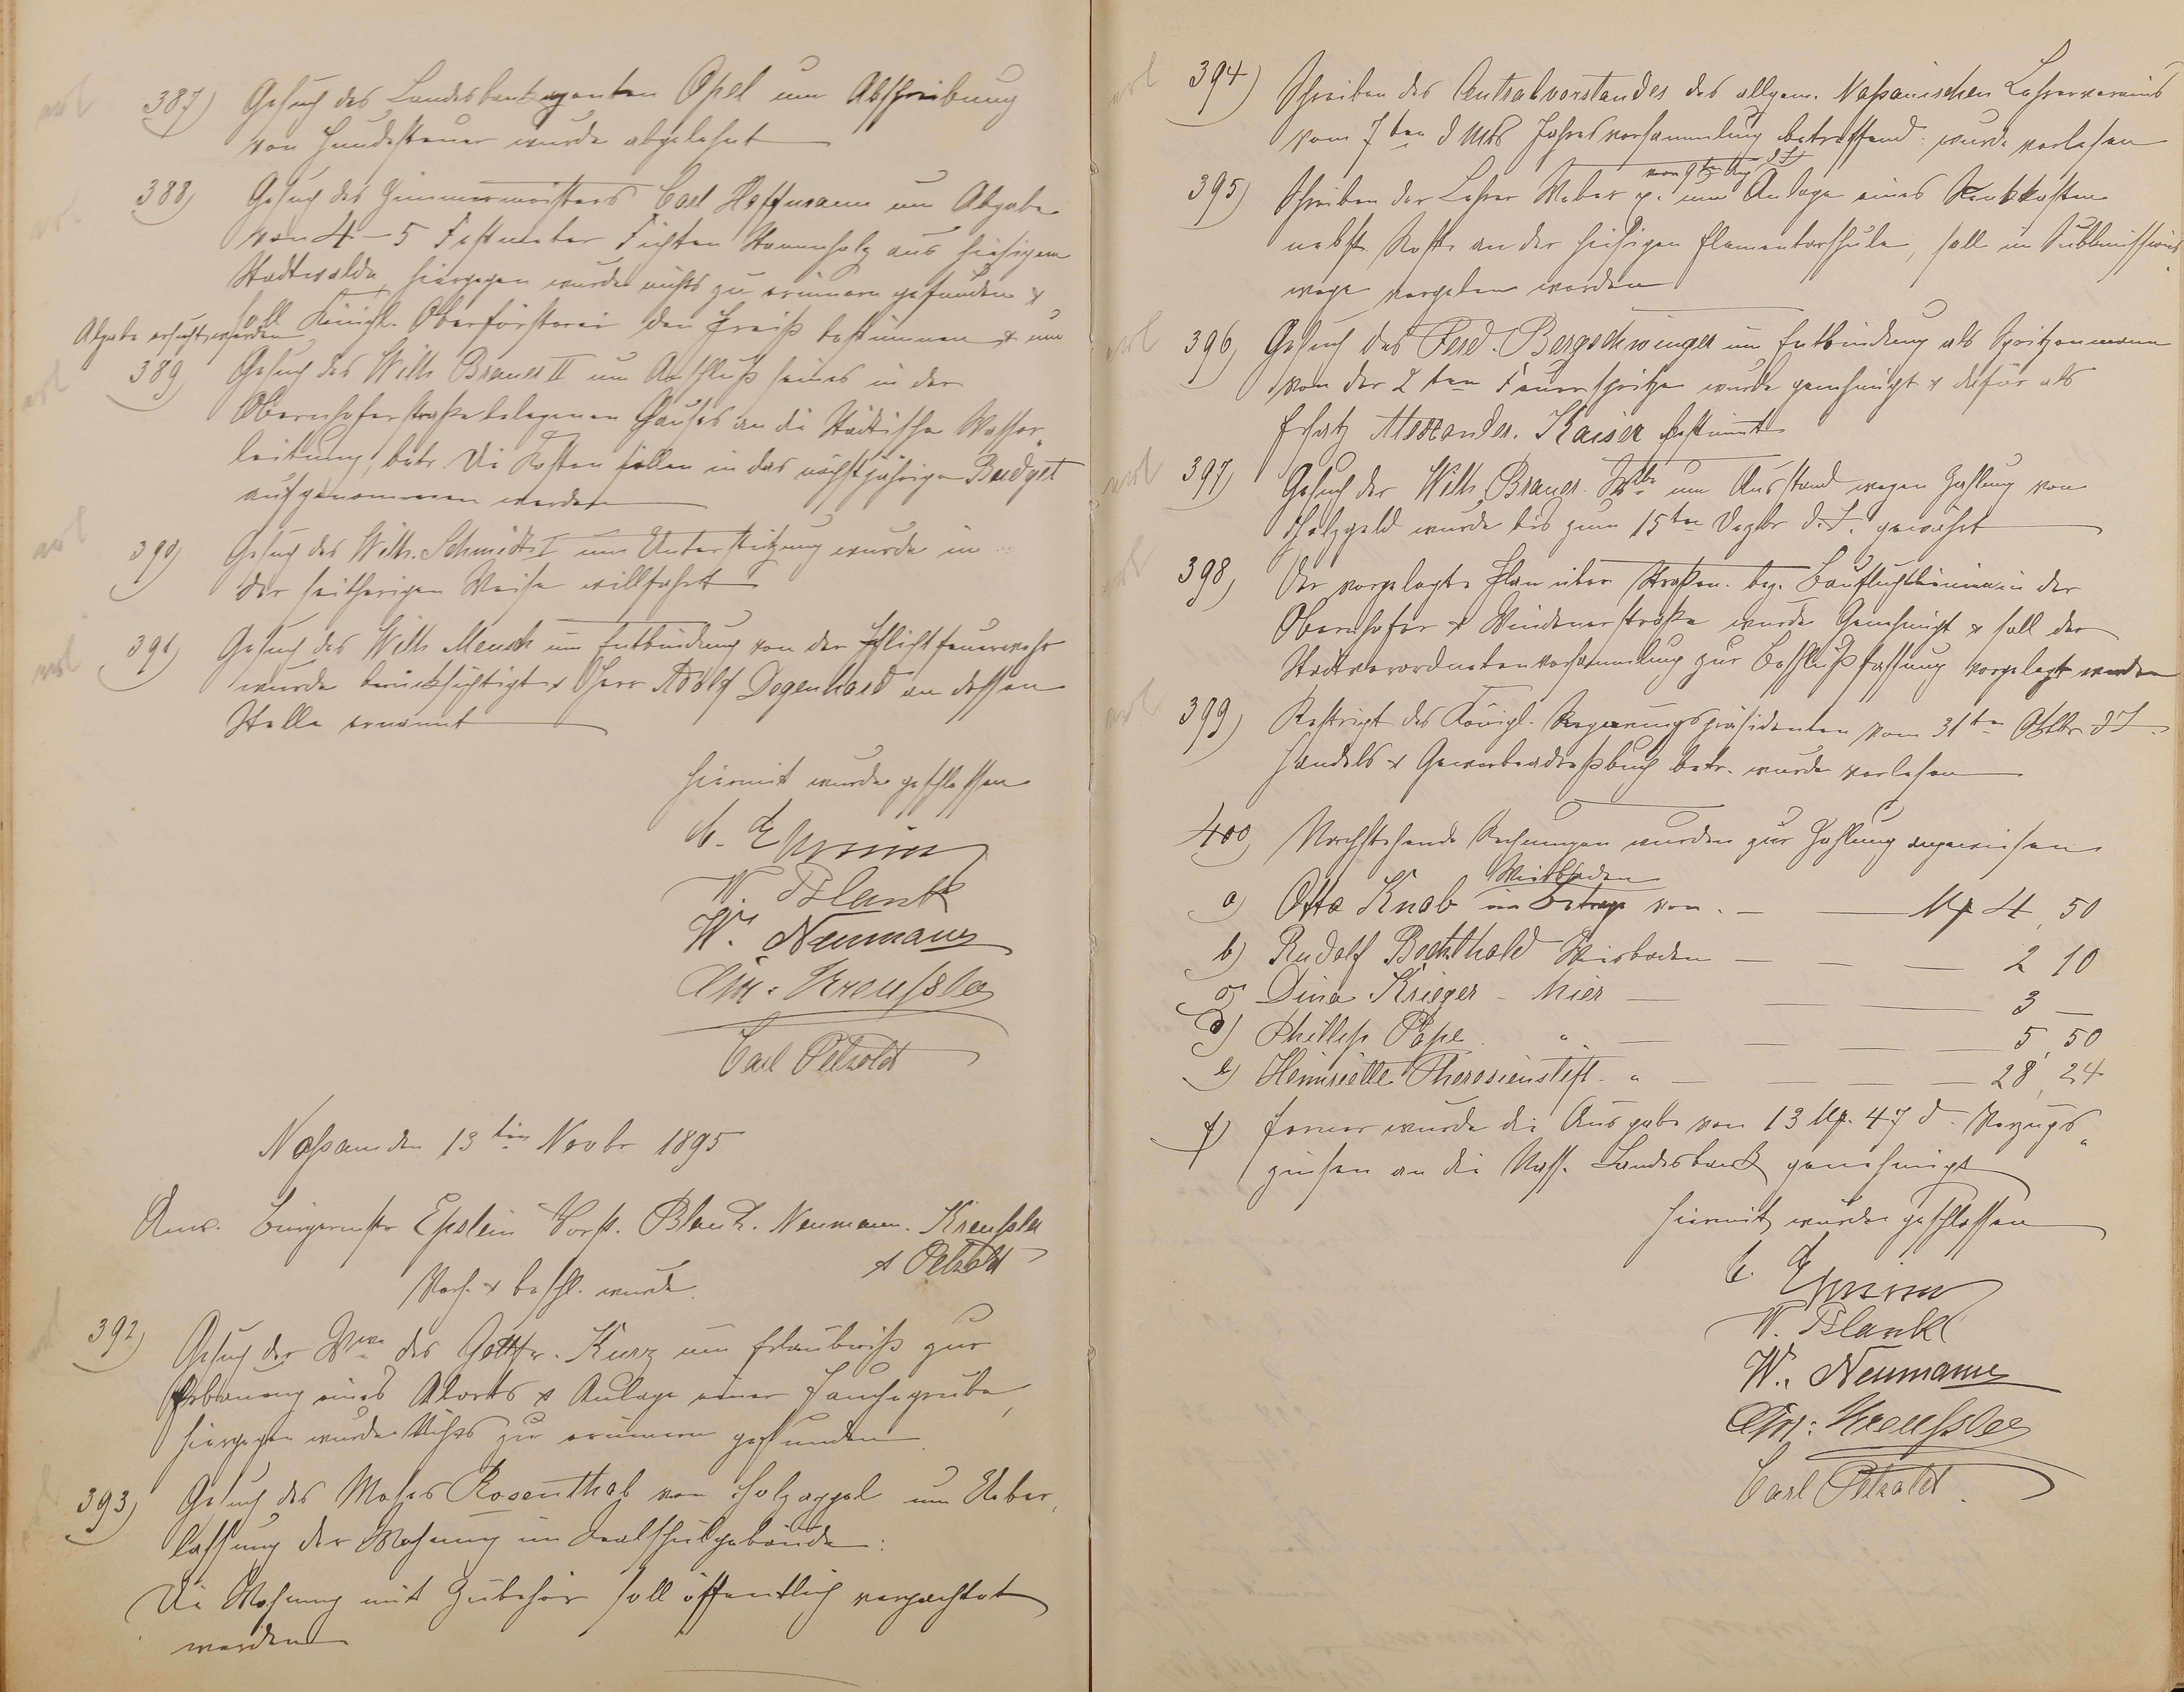 387) Gesuch des Landesbankagenten Opel um Abschreibung
von Hundesteuer wurde abgelehnt
388) Gesuch des Zimmermeisters Carl Hoffmann um Abgabe
von 4-5 Festmeter Fichten Stammholz aus hiesigem
Stadtwalde, hiergegen wurde nichts zu erinnern gefunden &
soll Königl. Oberförsterei den Preiß bestimmen & um
Abgabe ersucht werden
389) Gesuch des Wilh. Braner II um Anschluß seines in der
Obernhoferstraße belegenen Hauses an die Städtische Wasser
leitung betr. Die Kosten sollen in das nächstjährige Budget
aufgenommen werden
390) Gesuch des Wilh. Schmidt I um Unterstützung wurde in
der seitherigen Weise willfahrt
391) Gesuch des Wilh. Mensch um Entbindung von der Pflichtfeuerwehr
wurde berücksichtigt & Herr Adolf Degenhard an dessen
Stelle ernannt
Hiermit wurde geschlossen
W. Blank
W. Neumann
Chr. Kreussler
Carl Petzoldt
Nassau den 13ten Novbr 1895
Anw. Bürgermstr Epstein Vorst. Blank. Neumann. Kreussler
& Petzoldt
Verh. & beschl. wurde
392) Gesuch der Wwe des Gottfr. Kurz um Erlaubniß zur
Erbauung eines Aborts & Anlage einer Jauchegrube,
hiergegen wurde Nichts zu erinnern gefunden
393) Gesuch des Moses Rosenthal von Holzappel um Ueber
lassung der Wohnung im Realschulgebäude:
Die Wohnung mit Zubehör soll öffentlich verpachtet
werden
394) Schreiben des Centralvorstandes des allgem. Nassauischen Lehrervereins
vom 7ten d Mts Jahresversammlung betreffend: wurde verlesen
von 9ten d. J.
395) Schreiben der Lehrer Weber p. um Anlage eines
nebst Roste an der hiesigen Elementarschule, soll im Submissions
wege vergeben werden
396) Gesuch des Ferd. Bergschwinger um Entbindung als Spritzenmann
von der 2ten Feuerspritze wurde genehmigt & dafür als
Ersatz Alexander Kaiser bestimmt
397) Gesuch der Wilh. Braner Wtb um Ausstand wegen Zahlung von
Holzgeld wurde bis zum 15ten Dezbr d. J. gewährt
398) Der vorgelegte Plan über Straßen- bez. Baufluchtlinien in der
Obernhofer & Windenerstraße wurde Genehmigt & soll der
Stadtverordnetenversammlung zur Beschlußfassung vorgelegt werden
399) Reskript des Königl. Regierungspräsidenten vom 31ten Oktbr d J.
Handels & Gewerbeadreßbuch betr. wurde verlesen
400) Nachstehende Rechnungen wurden zur Zahlung angewiesen
Wiesbaden
a) Otto Knab im Betrage von - Mk 4, 50
b) Rudolf Bechthold Wiesbaden 2 10
c) Dina Krieger - hier 3 —
d) Phillipp Pape " 5, 50
e) Henriette Theresienstift " 28, 24
f) ferner wurde die Ausgabe von 13 Mk. 47 d. Verzugs
zinsen an die Nass. Landesbank genehmigt
Hiermit wurde geschlossen
W. Blank
W. Neumann
Chr. Kreussler
Carl Petzoldt